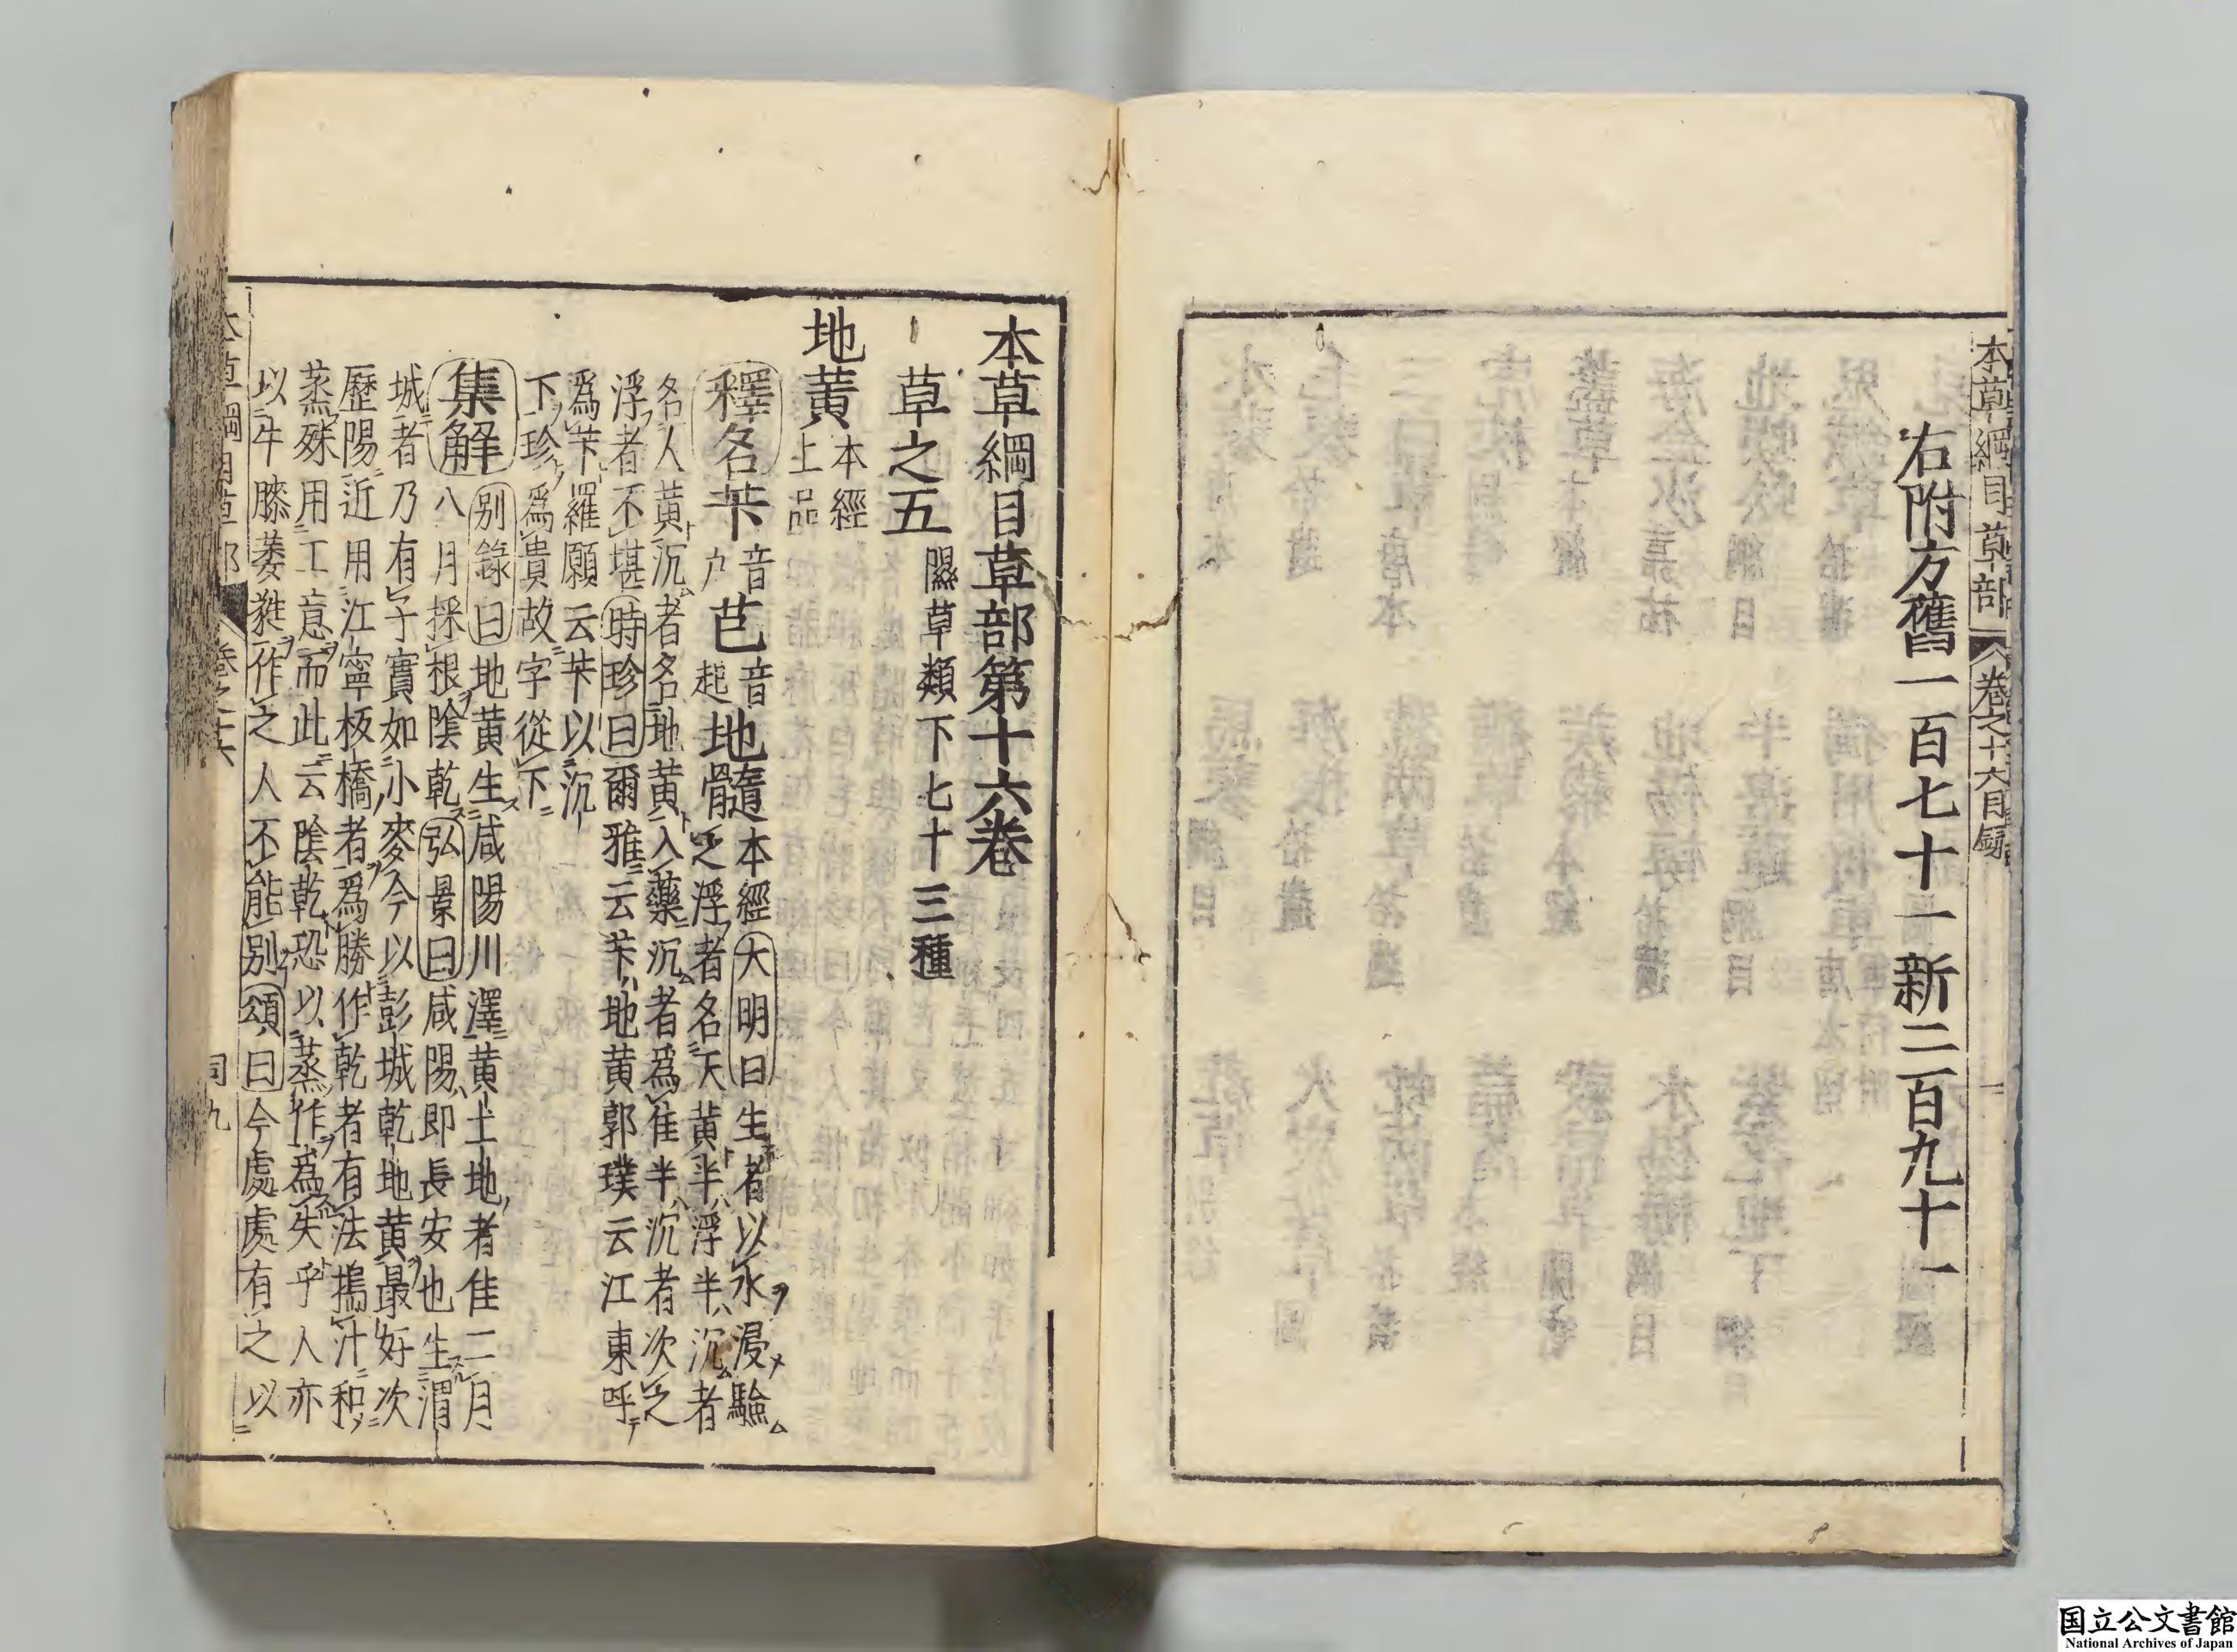 本草綱目草部
卷之十六目録
右附方舊一百七十一新二百九十一
本草綱目草部第十六卷
草之五 隰草類下七十三種
地黃 本經上品
釋名芐音户芑音起地髓本經大明曰生者以水浸驗
之浮者名天黃半浮半沉者
名人黃沉者名地黃入藥沉者爲佳半沉者次之
浮者不堪時珍曰爾雅云芐地黃郭璞云江東呼
爲芐羅願云芐以沉
下珍爲貴故字從下
集解別錄曰地黃生咸陽川澤黃土地者佳二月
八月採根陰乾弘景曰咸陽即長安也生渭
城者乃有子實如小麥今以彭城乾地黃最好次
歷陽近用江寧板橋者爲勝作乾者有法搗汁和
蒸殊用工意而此云陰乾恐以蒸作爲失乎人亦
以牛膝萎蕤作之人不能別頌曰今處處有之以
本草綱目草部
卷之十六
同九
国立公文書館
National Archives of Japan